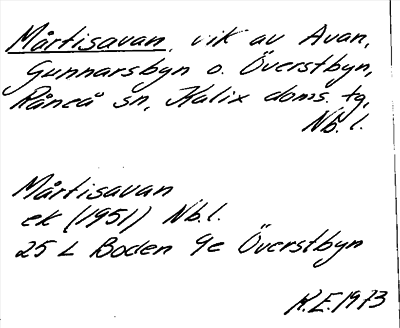 Mårtisavan, vik av Avan,
Gunnarsbyn o. Överstbyn,
Råneå sn, Kalix doms. tg,
Nb.l.
Mårtisavan
ek (1951) Nb.l.
25 L Boden 9e Överstbyn
K.E.1973